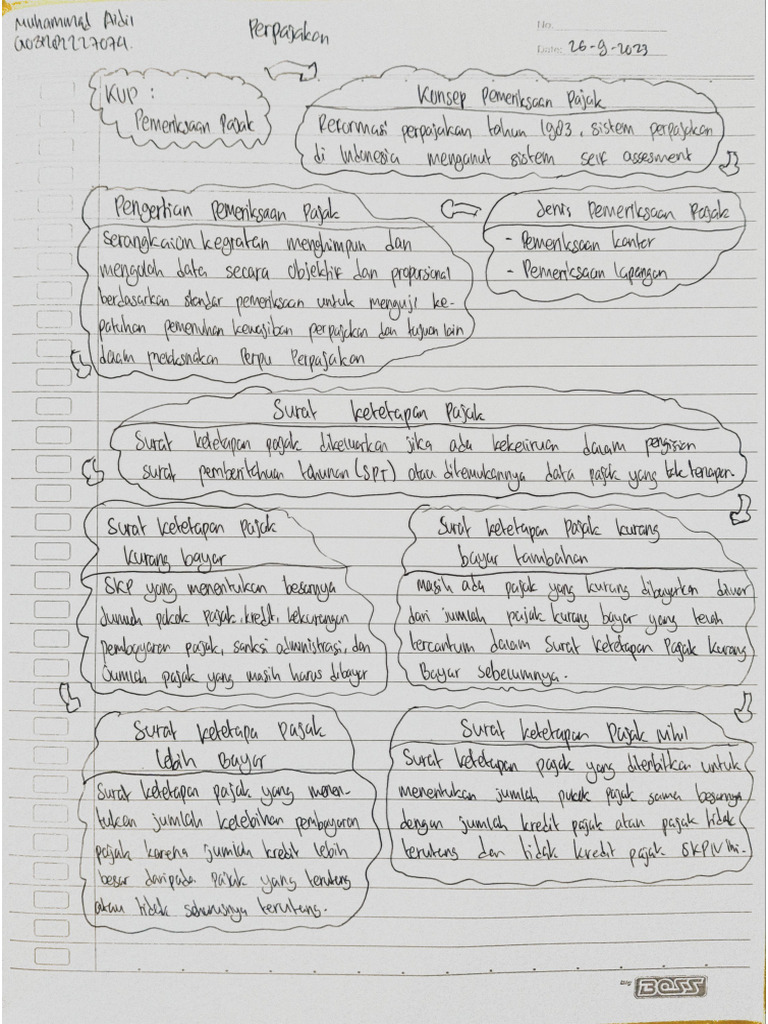 Muhammad Aidil
Perpajakan
No.
Date: 26-9-2023
KUP :
Pemeriksaan Pajak
Konsep Pemeriksaan Pajak
Reformasi perpajakan tahun 1983, sistem perpajakan
di Indonesia menganut sistem self assesment
Jenis Pemeriksaan Pajak
- Pemeriksaan kantor
- Pemeriksaan lapangan
Pengertian Pemeriksaan Pajak
Serangkaian kegiatan menghimpun dan
mengolah data secara objektif dan proporsional
berdasarkan standar pemeriksaan untuk menguji ke-
patuhan pemenuhan kewajiban perpajakan dan tujuan lain
dalam melaksnakan Perpu Perpajakan
Surat ketetapan Pajak
Surat ketetapan pajak dikeluarkan jika ada kekeliruan dalam pengisian
surat pemberitahuan tahunan (SPT) atau ditemukannya data pajak yang
Surat ketetapan pajak
kurang bayar
SKP yang menentukan besarnya
Jumlah pokok pajak, kredit, kekurangan
pembayaran pajak, sanksi administrasi, dan
Jumlah pajak yang masih harus dibayar
Surat ketetapan Pajak kurang
bayar tambahan
masih ada pajak yang kurang dibayarkan diluar
dari jumlah pajak kurang bayar yang telah
tercantum dalam Surat Ketetapan Pajak Kurang
Bayar sebelumnya.
Surat ketetapa Pajak
lebih Bayar
Surat ketetapan pajak yang menen-
tukan jumlah kelebihan pembayaran
pajak karena jumlah kredit lebih
besar daripada pajak yang terutang
atau tidak seharusnya terutang.
Surat ketetapan Pajak Nihil
Surat ketetapan pajak yang diterbitkan untuk
menentukan jumlah pokok pajak sama besarnya
dengan jumlah kredit pajak atau pajak tidak
terutang dan tidak kredit pajak
BOSS